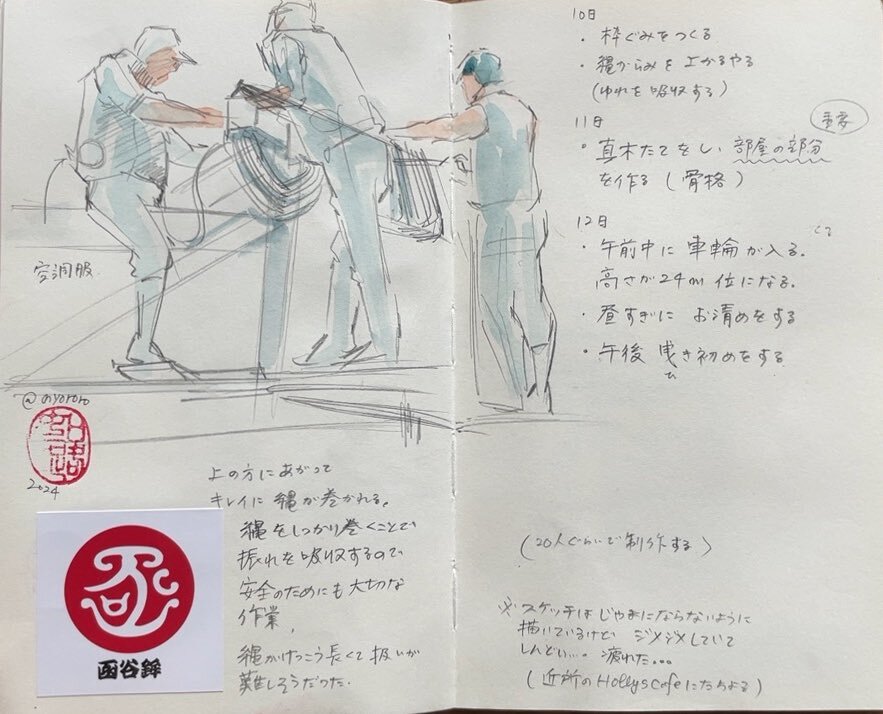 空調服
@nyororo
2024
函谷鉾
上の方にあがって
キレイに縄が巻かれる。
縄をしっかり巻くことで
振れを吸収するので
安全のためにも大切な
作業。
縄がけっこう長くて扱いが
難しそうだった.
10日
・枠ぐみをつくる
・縄がらみを 上がるやる
(ゆれを吸収する)
11日
・真木たてをし 部屋の部分
を作る (骨格)
12日
・午前中に 車輪が入る.
高さが24m 位になる.
・昼すぎに お清めをする
・午後 曳き初めをする
ひ
(20人ぐらいで制作する)
※スケッチはじゃまにならないように
描いているけど ジメジメしていて
しんどい…。疲れた…
(近所のHollys Cafeにたちよる)